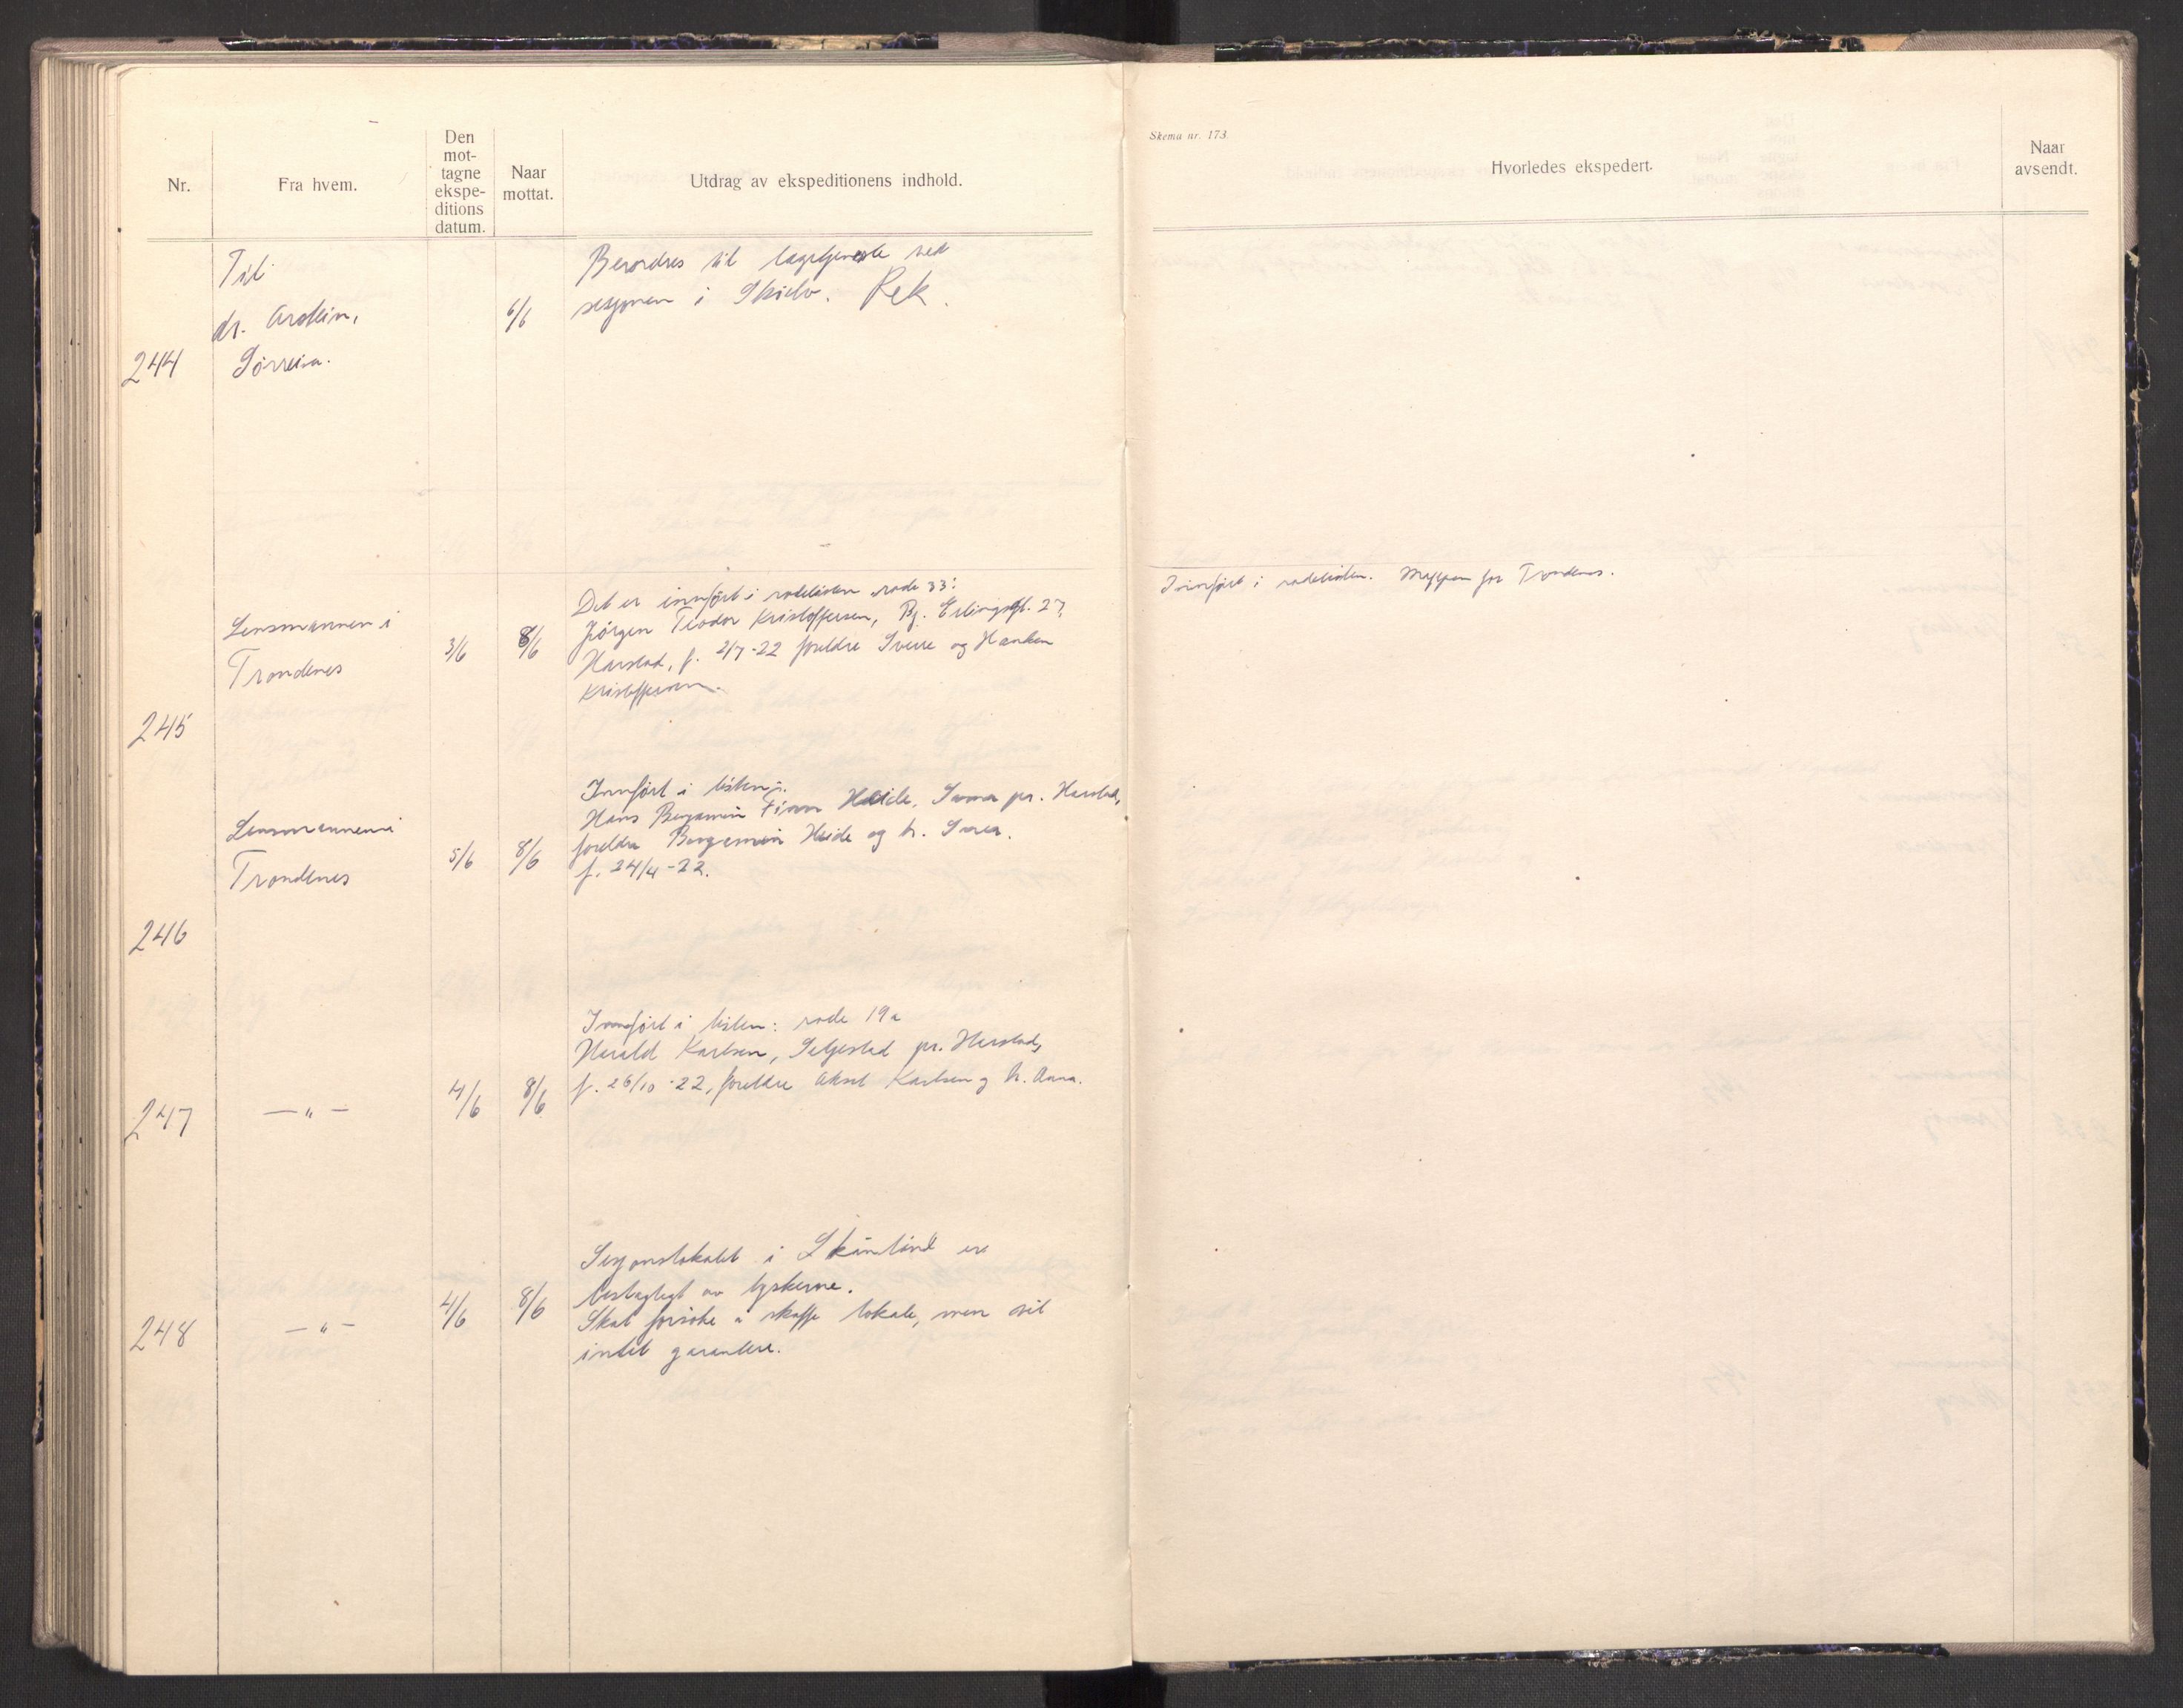 Nr.
Fra hvem.
Den
mot-
tagne
ekspe-
ditions
datum.
Naar
mottat.
Utdrag av ekspeditionens indhold.
Skema nr. 173.
Hvorledes ekspedert.
Naar
avsendt.
244
Til
dr. Arstein,
Sörreisa.
6/6
Beordres til lægetjeneste ved
sesjonen i Rek.
245
Lensmannen i
Trondenes
3/6
8/6
Det er innført i rodelisten rode 33:
Jörgen Teodor Kristoffersen, Bj. Erlingsgt. 27,
Harstad, f. 2/7-22 foreldre Sverre og Hanken
Kristoffersen.
Innført i rodelisten. Mappen for Trondenes.
246
Lensmannen i
Trondenes
5/6
8/6
Innført i listen:
Hans Benjamin Finn Heide, pr. Harstad,
foreldre Benjamin Heide og h.
f. 24/4-22.
247
— " —
4/6
8/6
Innført i listen: rode 19a
Harald Karlsen, Seljestad pr. Harstad,
f. 26/10-22, foreldre Aksel Karlsen og h. Anna.
248
— " —
4/6
8/6
Sesjonslokalet i Skånland er
beslaglagt av tyskerne.
Skal forsöke å skaffe lokale, men vil
intet garantere.